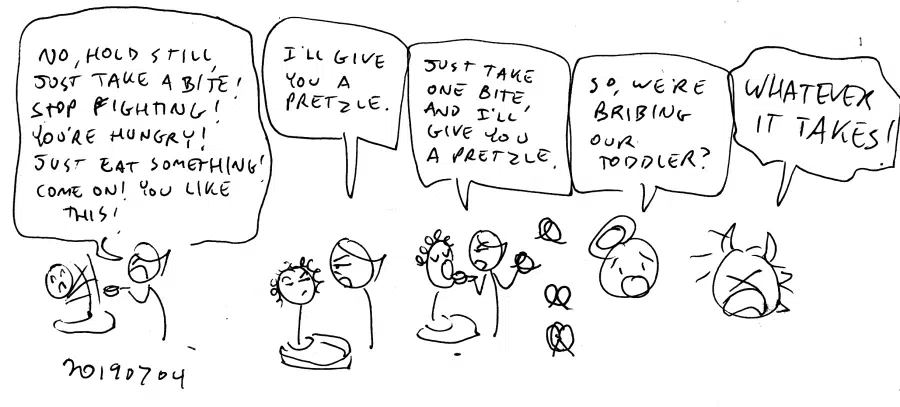 NO, HOLD STILL,
JUST TAKE A BITE!
STOP FIGHTING!
YOU'RE HUNGRY!
JUST EAT SOMETHING!
COME ON! YOU LIKE
THIS!
I'LL GIVE
YOU A
PRETZLE.
JUST TAKE
ONE BITE,
AND I'LL
GIVE YOU
A PRETZLE.
SO, WE'RE
BRIBING
OUR
TODDLER?
WHATEVER
IT TAKES!
20190704